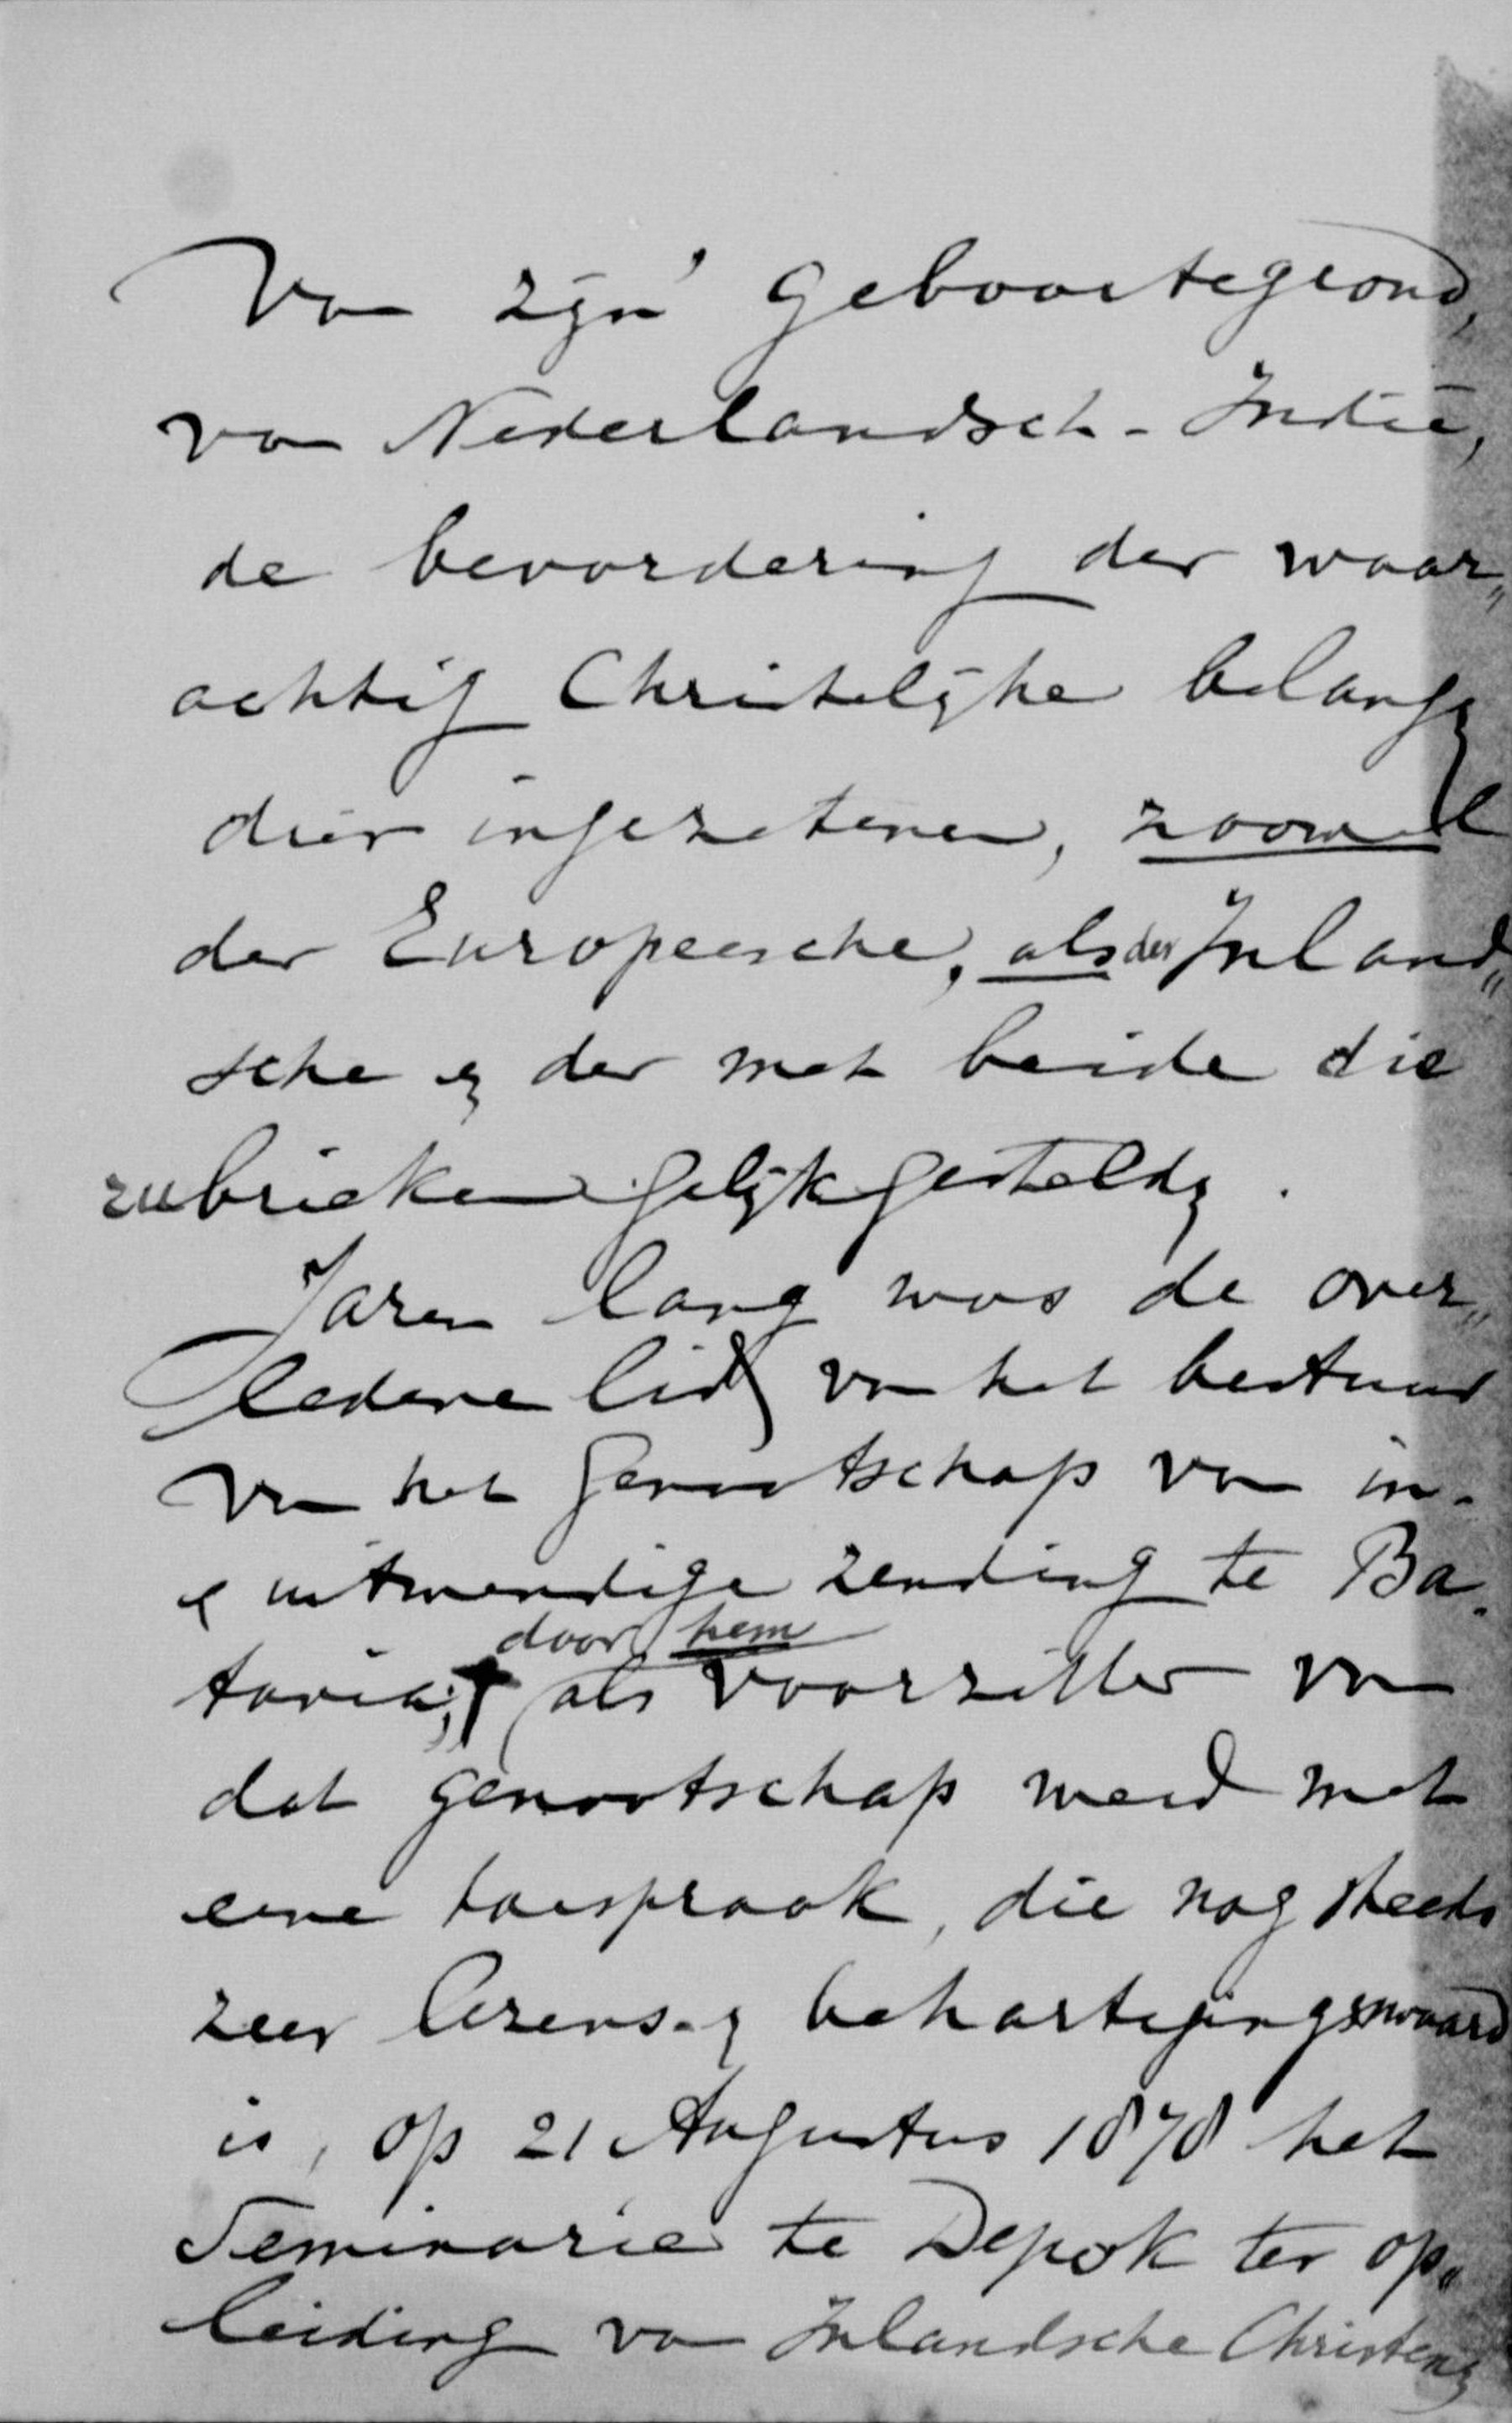 Van zijn' geboortegrond,
van Nederlandsch-Indië,
de bevordering der waar„
achtig Christelijke belangen
dier ingezetenen, zoowel
der Europeesche, als der Inland„
sche en der met beide die
rubrieken gelijkgestelden.
Jaren lang was de over„
ledene lid van het bestuur
van het Genootschap van in-
en uitwendige zending te Ba-
tavia; door hem
als voorzitter van
dat genootschap werd met
eene toespraak, die nog steeds
zeer lezens- en behartigingswaard
is, op 21 Augustus 1878 het
Seminarie te Depok ter op„
leiding van Inlandsche Christenen